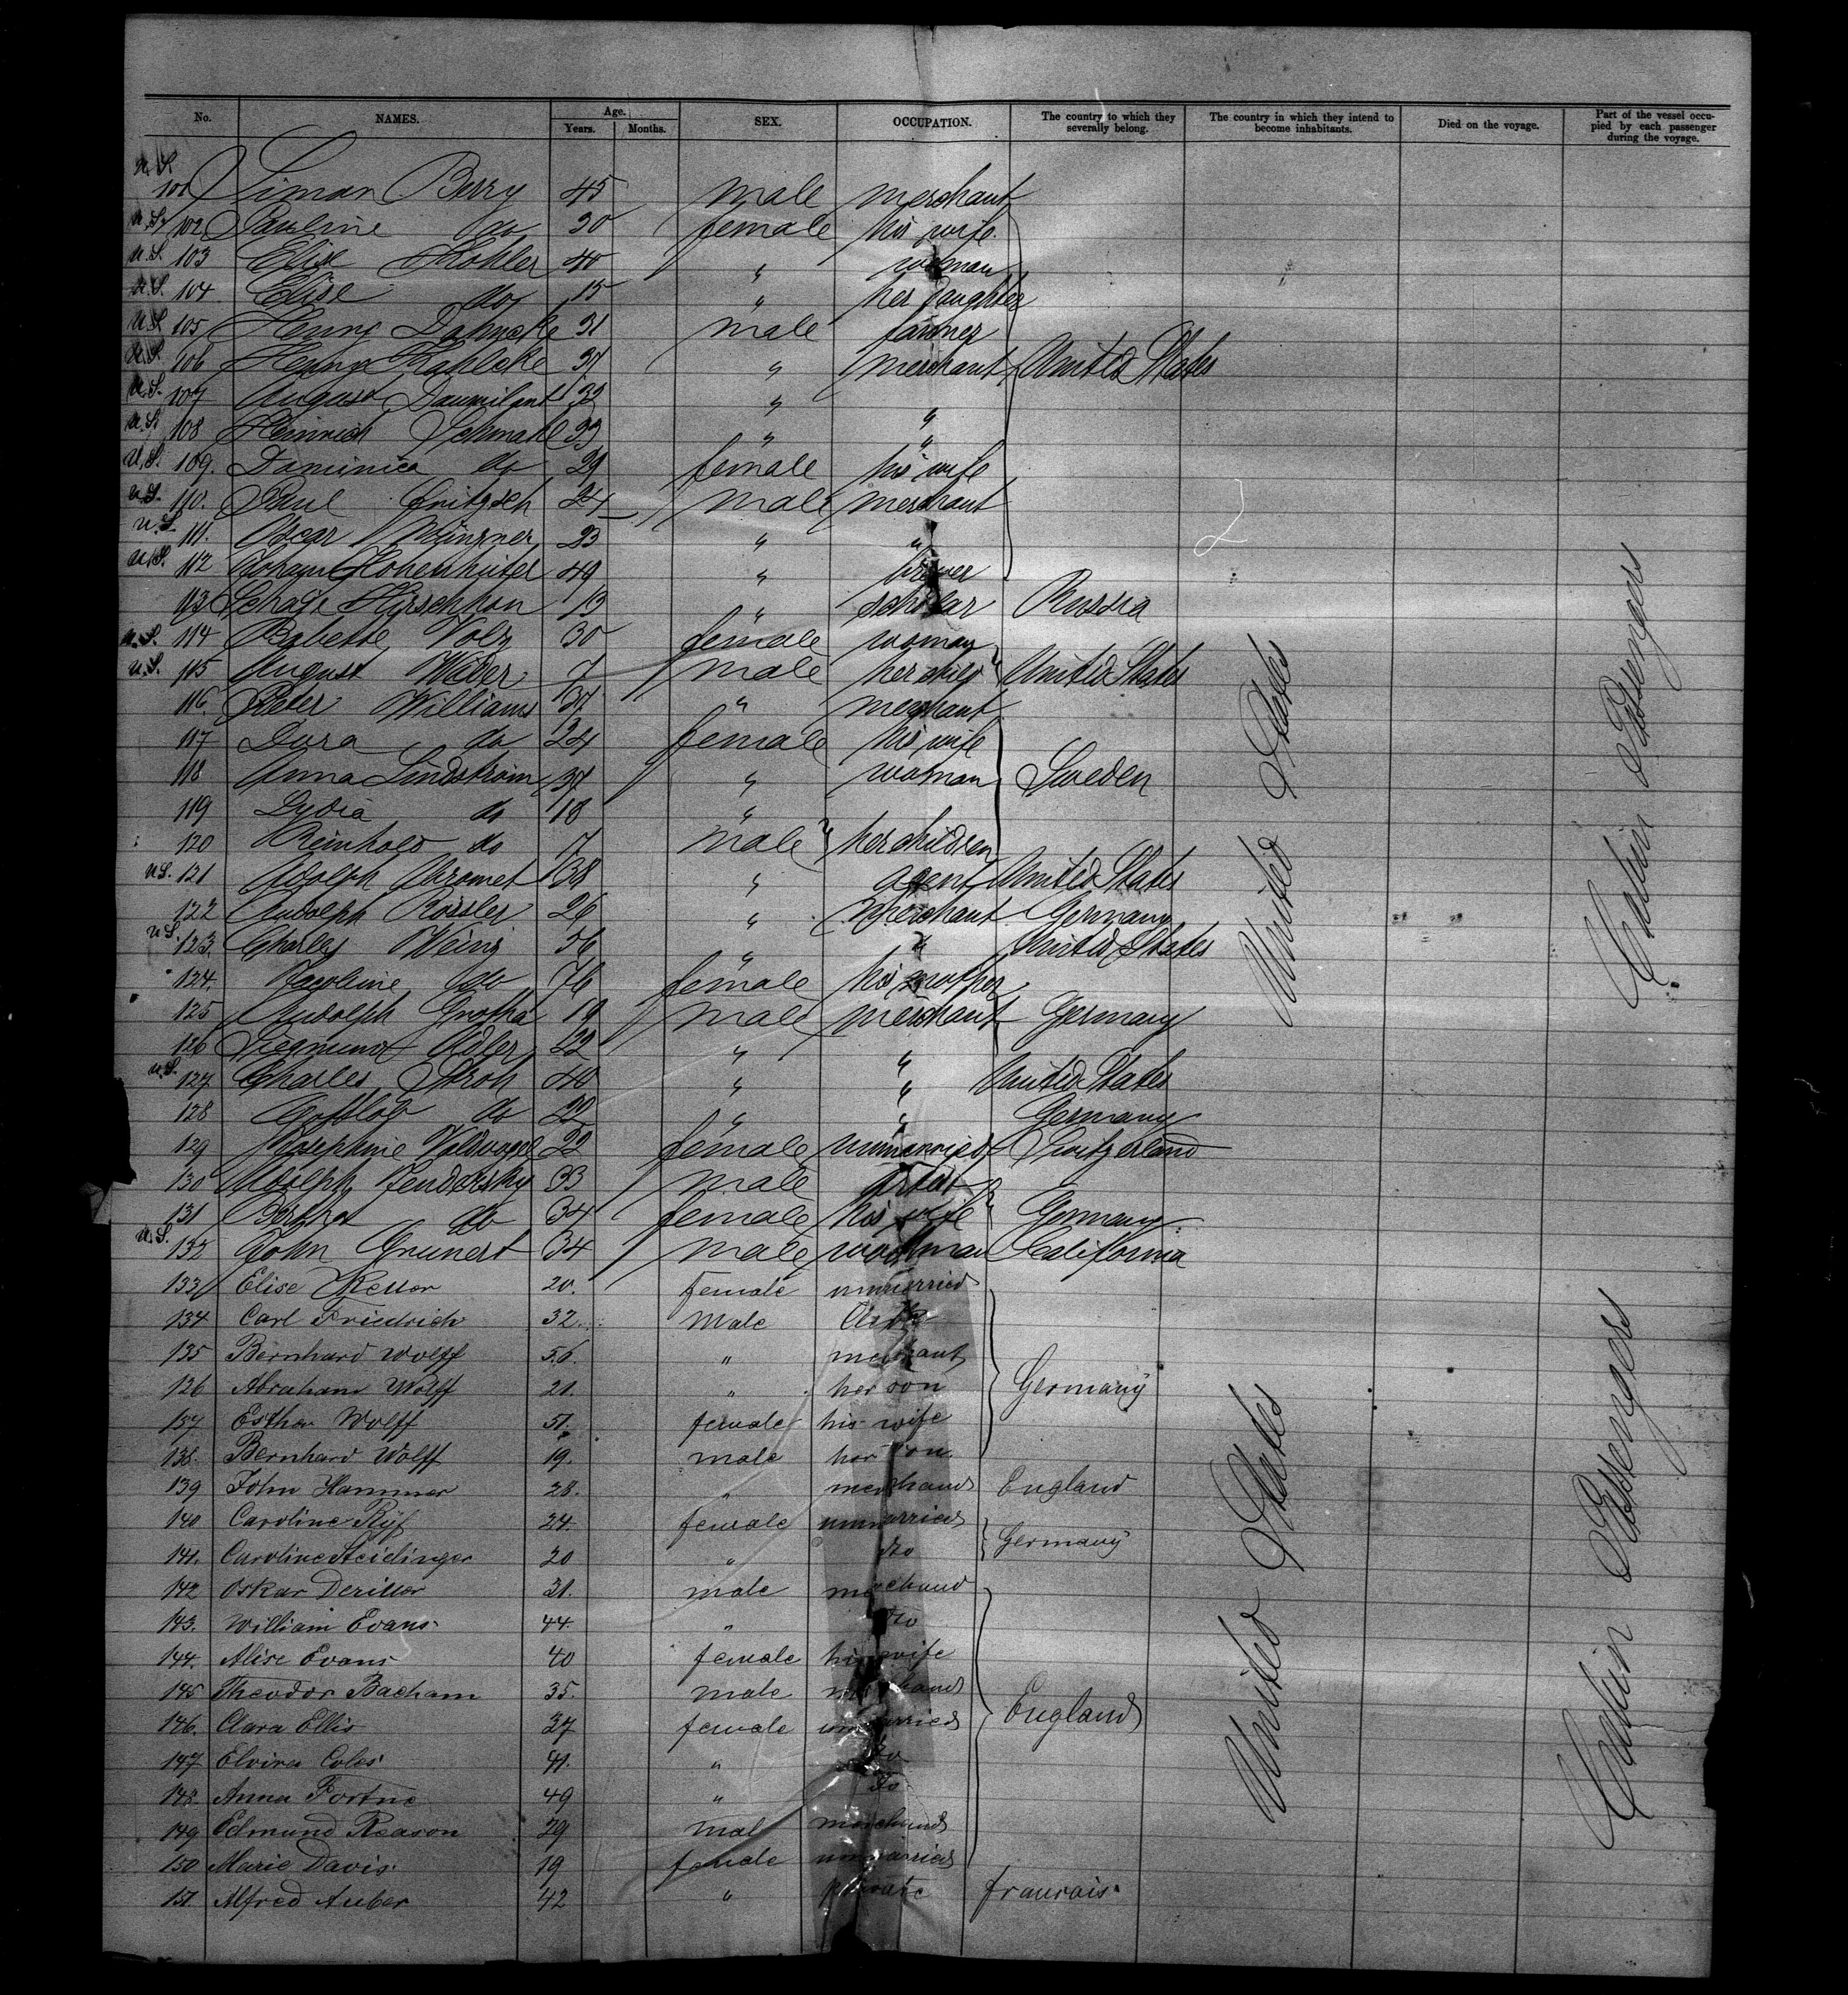 No. NAMES. Age. Years. Months. SEX. OCCUPATION. The country to which they severally belong. The country in which they intend to become inhabitants. Died on the voyage. Part of the vessel occupied by each passenger during the voyage.
U.S. 101 Simon Berry 45 male merchant
U.S. 102 Pauline do 30 female his wife
U.S. 103 Elise Kohler 40 " woman
U.S. 104 Elise do 15 " her daughter
U.S. 105 Henry 31 male farmer
U.S. 106 Henry Kahlcke 37 " merchant United States
U.S. 107 August 32 "
U.S. 108 Heinrich Schmahl 33 " "
U.S. 109. Dominica do 29 female his wife
U.S. 110. Paul Fritzsch 24 male merchant
U.S. 111. Oscar 23 " "
U.S. 112 Johann 49 "
113 Hirschhon 13 " scholar Russia
U.S. 114 Babette Volz 30 female woman
U.S. 115 August Weber 7 male her child United States
116. Peter Williams 37 " merchant
117 Dora do 24 female his wife
118 Anna Lindström 37 " woman Sweden
119 Lydia do 18 "
120 Reinhold do 7 male her children
U.S. 121 Adolph 38 " agent United States
122 Rudolph Rossler 26 " merchant Germany
U.S. 123. Charles Weinz 56 " " United States
124. do 76 female his mother
125 Rudolph Grotha 19 male merchant Germany
126 Siegmund Adler 22 " "
U.S. 127 Charles Stroh 40 " " United States
128 Gottlob do 22 " " Germany
129 Josephine Waldvogel 22 female unmarried Switzerland
130 Adolph 33 male
131 Bertha do 34 female his wife Germany
U.S. 132 John Grunert 34 male workman California
133 Elise Keller 20. female unmarried
134 Carl Friedrich 32. Male
135 Bernhard Wolff 56. " merchant
136 Abraham Wolff 21. " her son Germany
137 Esther Wolff 51. female his wife
138. Bernhard Wolff 19. male her son
139 John Hammer 28. " merchand England
140 Caroline Ryf 24. female unmarried
141. Caroline Steidinger 20 " do Germany
142 Oskar 31. male merchand
143. William Evans 44. " do
144. Alise Evans 40 female his wife
145 Theodor Bacham 35. male merchand
146. Clara Ellis 27 female unmarried England
147 Elvira Coles 41. " do
148. Anna Fortne 49 " do
149 Edmund Reason 29 mal merchand
150 Marie Davis 19 female unmarried
151. Alfred Auber 42 " private francais
United States
Cabin Passengers
United States
Cabin Passengers